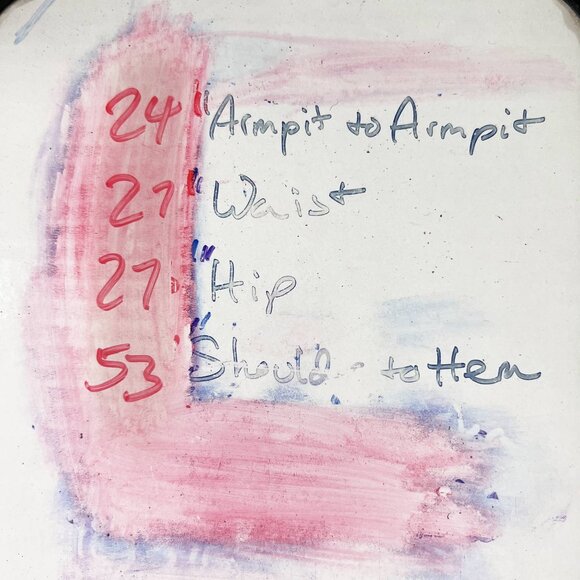 24" Armpit to Armpit
27" Waist
27" Hip
53" Should - to Hem